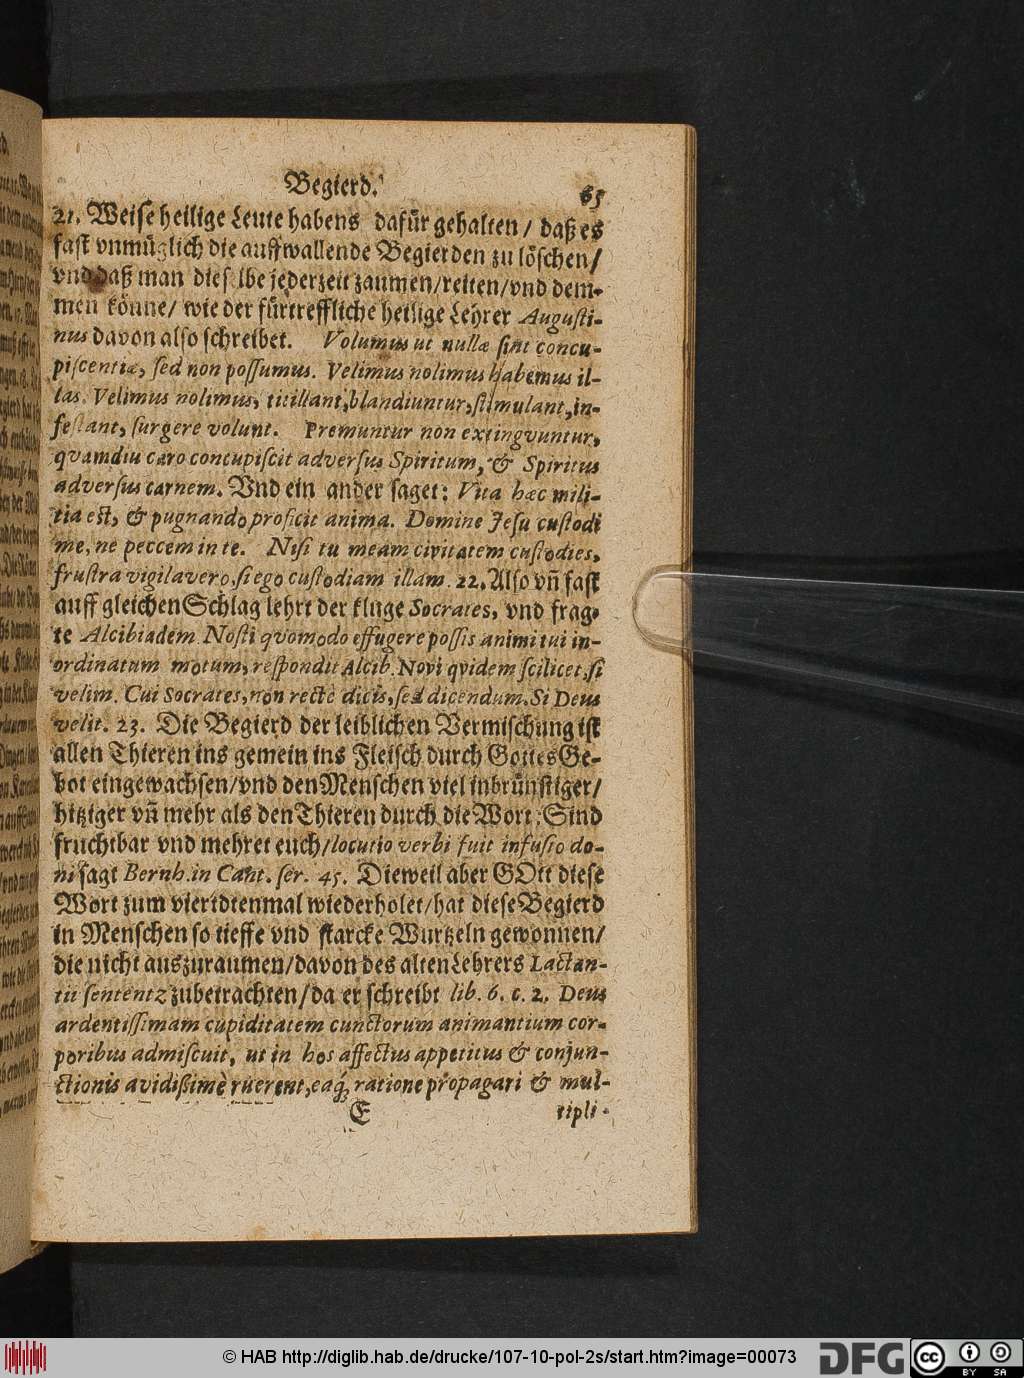 Begierd.
65
21. Weise heilige Leute habens dafür gehalten / daß es
fast vnmüglich die auffwallende Begierden zu löschen /
vnd daß man dieselbe jederzeit zaumen / reiten / vnd dem-
men könne / wie der fürtreffliche heilige Lehrer Augusti-
nus davon also schreibet. Volumus ut nullæ sint concu-
piscentiæ, sed non possumus. Velimus nolimus habemus il-
las. Velimus nolimus, titillant, blandiuntur, stimulant, in-
festant, surgere volunt. Premuntur non extingvuntur,
qvamdiu caro concupiscit adversus Spiritum, & Spiritus
adversus carnem. Vnd ein ander saget: Vita hæc mili-
tia est, & pugnando proficit anima. Domine Jesu custodi
me, ne peccem in te. Nisi tu meam civitatem custodies,
frustra vigilavero, si ego custodiam illam. 22. Also vñ fast
auff gleichen Schlag lehrt der kluge Socrates, vnd frag-
te Alcibiadem. Nosti qvomodo effugere possis animi tui in-
ordinatum motum, respondit Alcib. Novi qvidem scilicet, si
velim. Cui Socrates, non rectè dicis, sed dicendum. Si Deus
velit. 23. Die Begierd der leiblichen Vermischung ist
allen Thieren ins gemein ins Fleisch durch Gottes Ge-
bot eingewachsen / vnd den Menschen viel inbrünstiger /
hitziger vñ mehr als den Thieren durch die Wort: Sind
fruchtbar vnd mehret euch / locutio verbi fuit infusio do-
ni sagt Bernh. in Cant. ser. 45. Dieweil aber GOtt diese
Wort zum vierdtenmal wiederholet / hat diese Begierd
in Menschen so tieffe vnd starcke Wurtzeln gewonnen /
die nicht auszuraumen / davon des alten Lehrers Lactan-
tii sententz zubetrachten / da er schreibt lib. 6. c. 2. Deus
ardentissimam cupiditatem cunctorum animantium cor-
poribus admiscuit, ut in hos affectus appetitus & conjun-
ctionis avidißimè ruerent, eaq́; ratione propagari & mul-
E
tipli-
© HAB http://diglib.hab.de/drucke/107-10-pol-2s/start.htm?image=00073
DFG
cc
BY SA